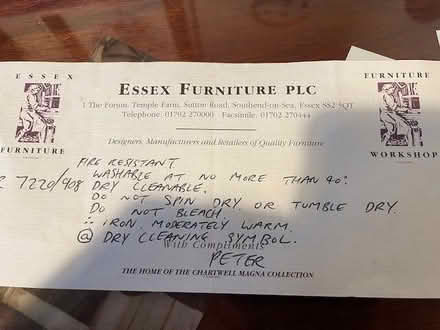 ESSEX
FURNITURE
ESSEX FURNITURE PLC
1 The Forum, Temple Farm, Sutton Road, Southend-on-Sea, Essex SS2 5QT
Telephone: 01702 270000 Facsimile: 01702 270444
Designers, Manufacturers and Retailers of Quality Furniture
FURNITURE
WORKSHOP
FIRE RESISTANT
7220/908 WASHABLE AT NO MORE THAN 40°.
DRY CLEANABLE.
DO NOT SPIN DRY OR TUMBLE DRY.
DO NOT BLEACH.
IRON MODERATELY WARM.
DRY CLEANING SYMBOL.
With Compliments
PETER
THE HOME OF THE CHARTWELL MAGNA COLLECTION